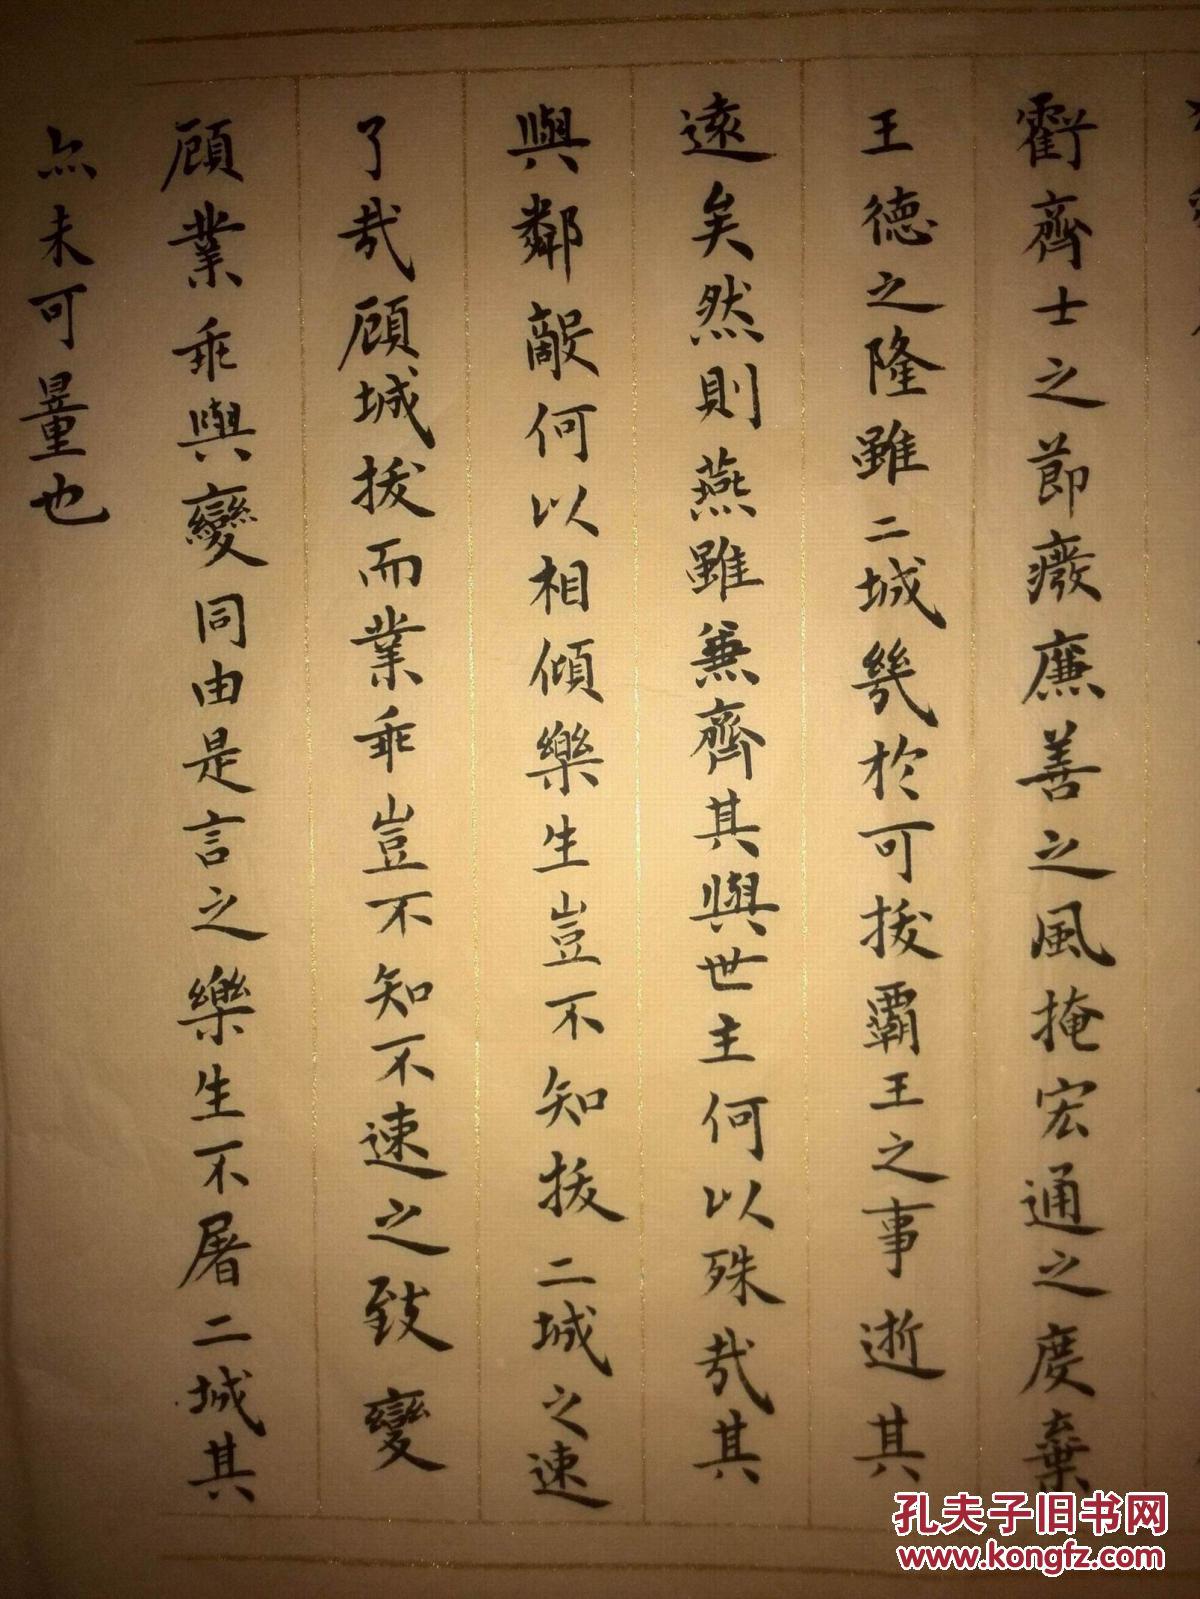 虧齊士之節廢廉善之風掩宏通之度棄
王德之隆雖二城幾於可拔霸王之事逝其
遠矣然則燕雖兼齊其與世主何以殊哉其
與鄰敵何以相傾樂生豈不知拔二城之速
了哉顧城拔而業乖豈不知不速之致變
顧業乖與變同由是言之樂生不屠二城其
亦未可量也
孔夫子旧书网
www.kongfz.com